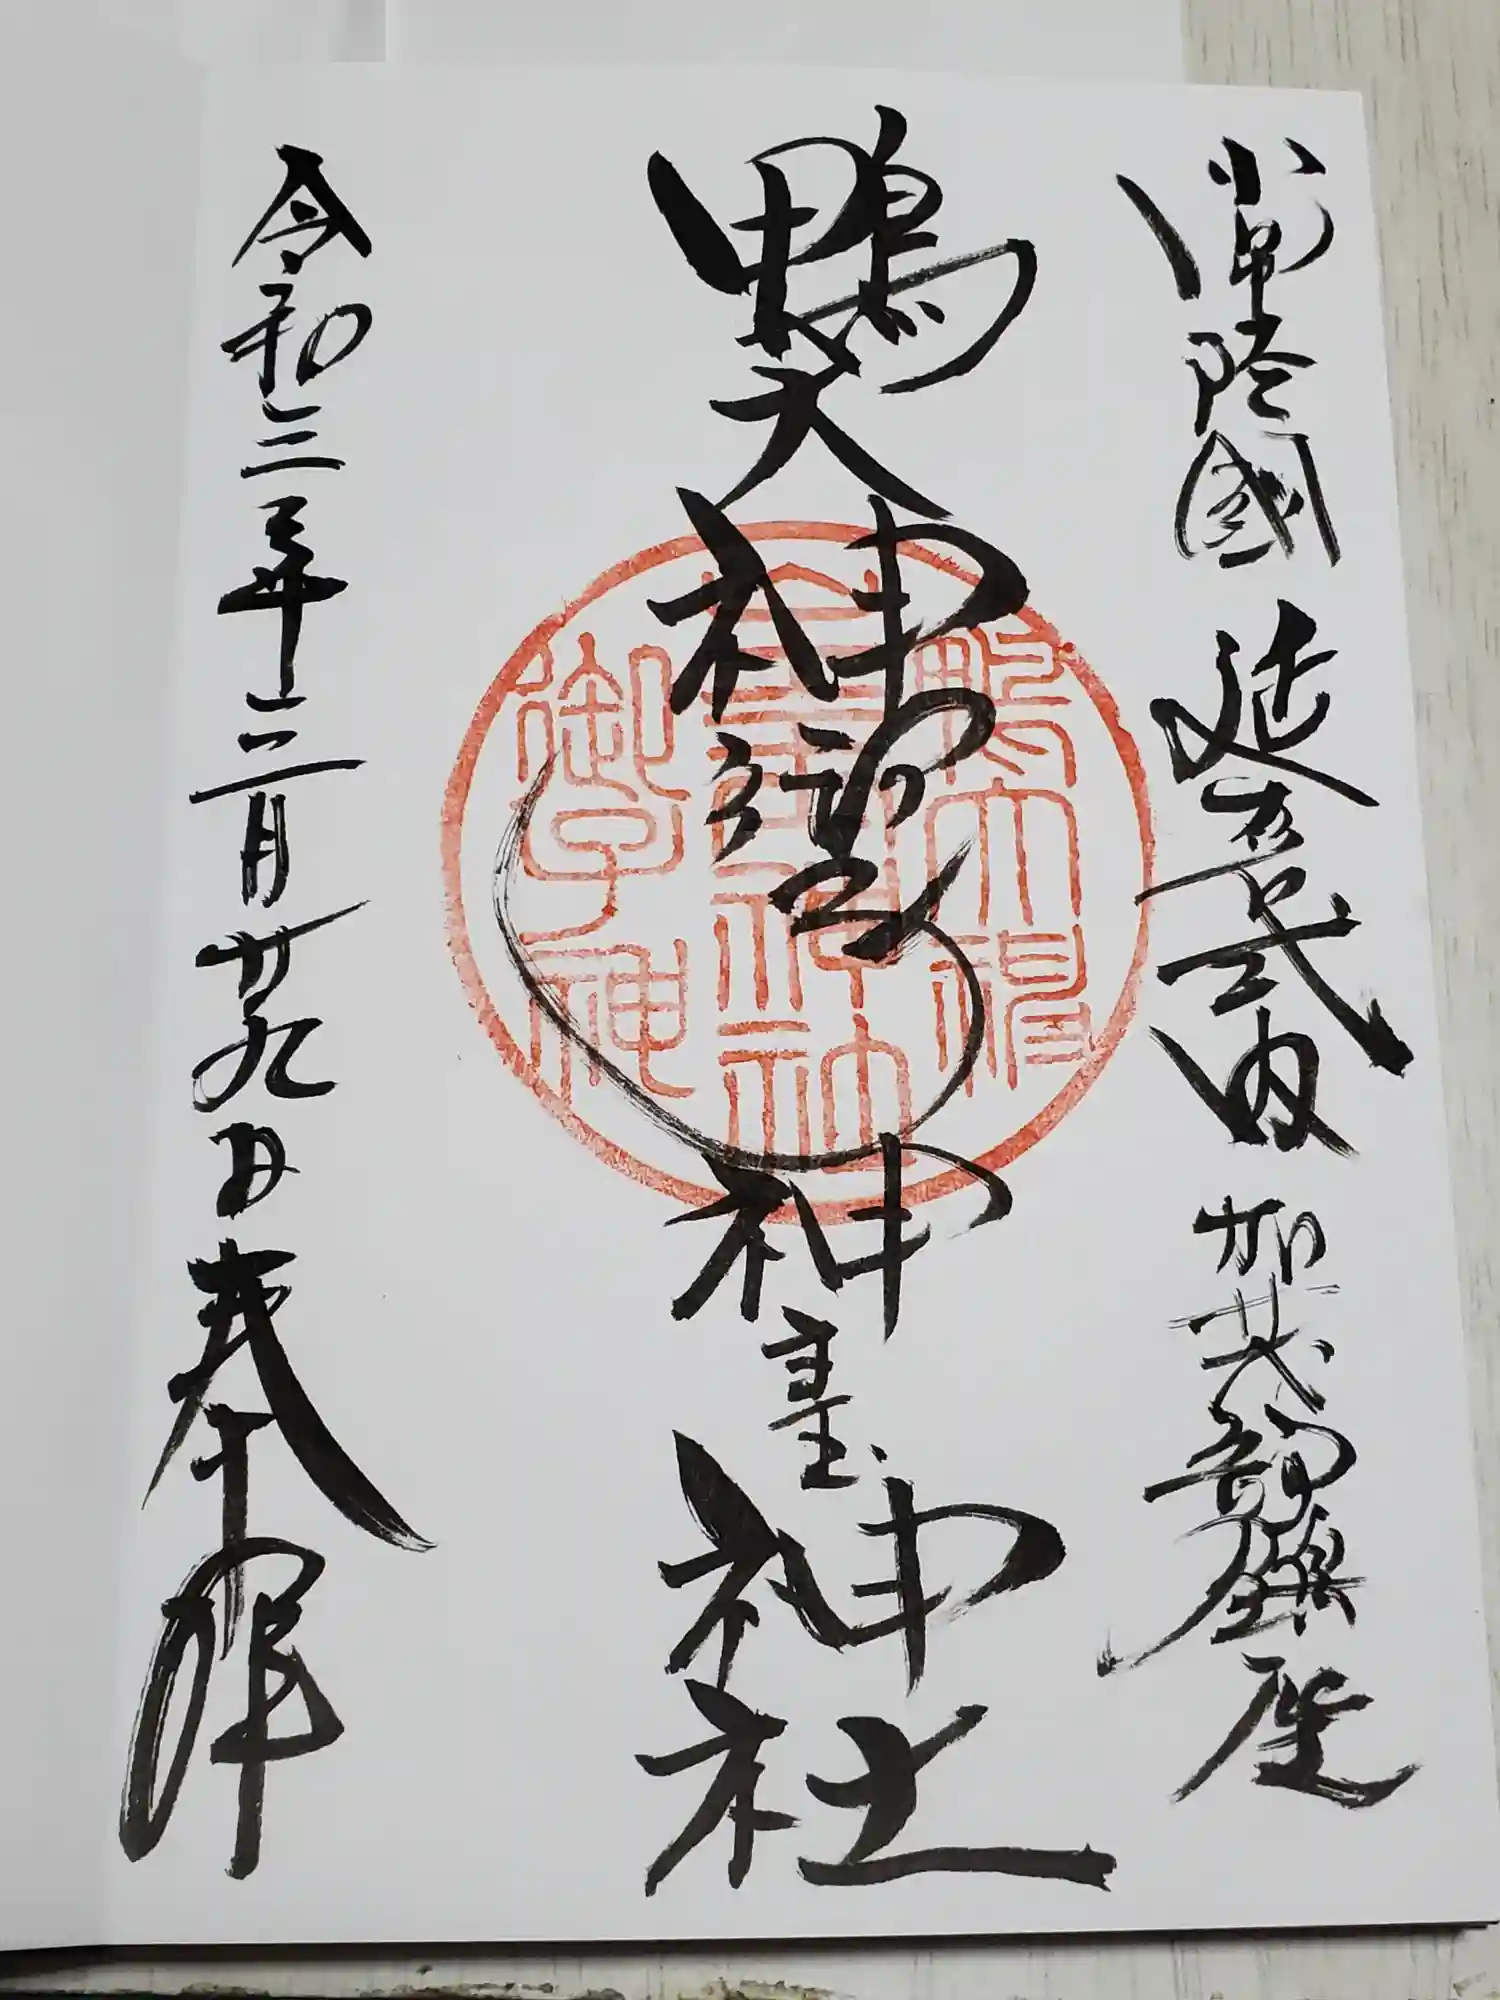 常陸國 延喜式内 加茂部鎮座
鴨大神御子神主玉神社
令和三年三月廿九日 奉拝
鴨大神
主玉神社
御子神